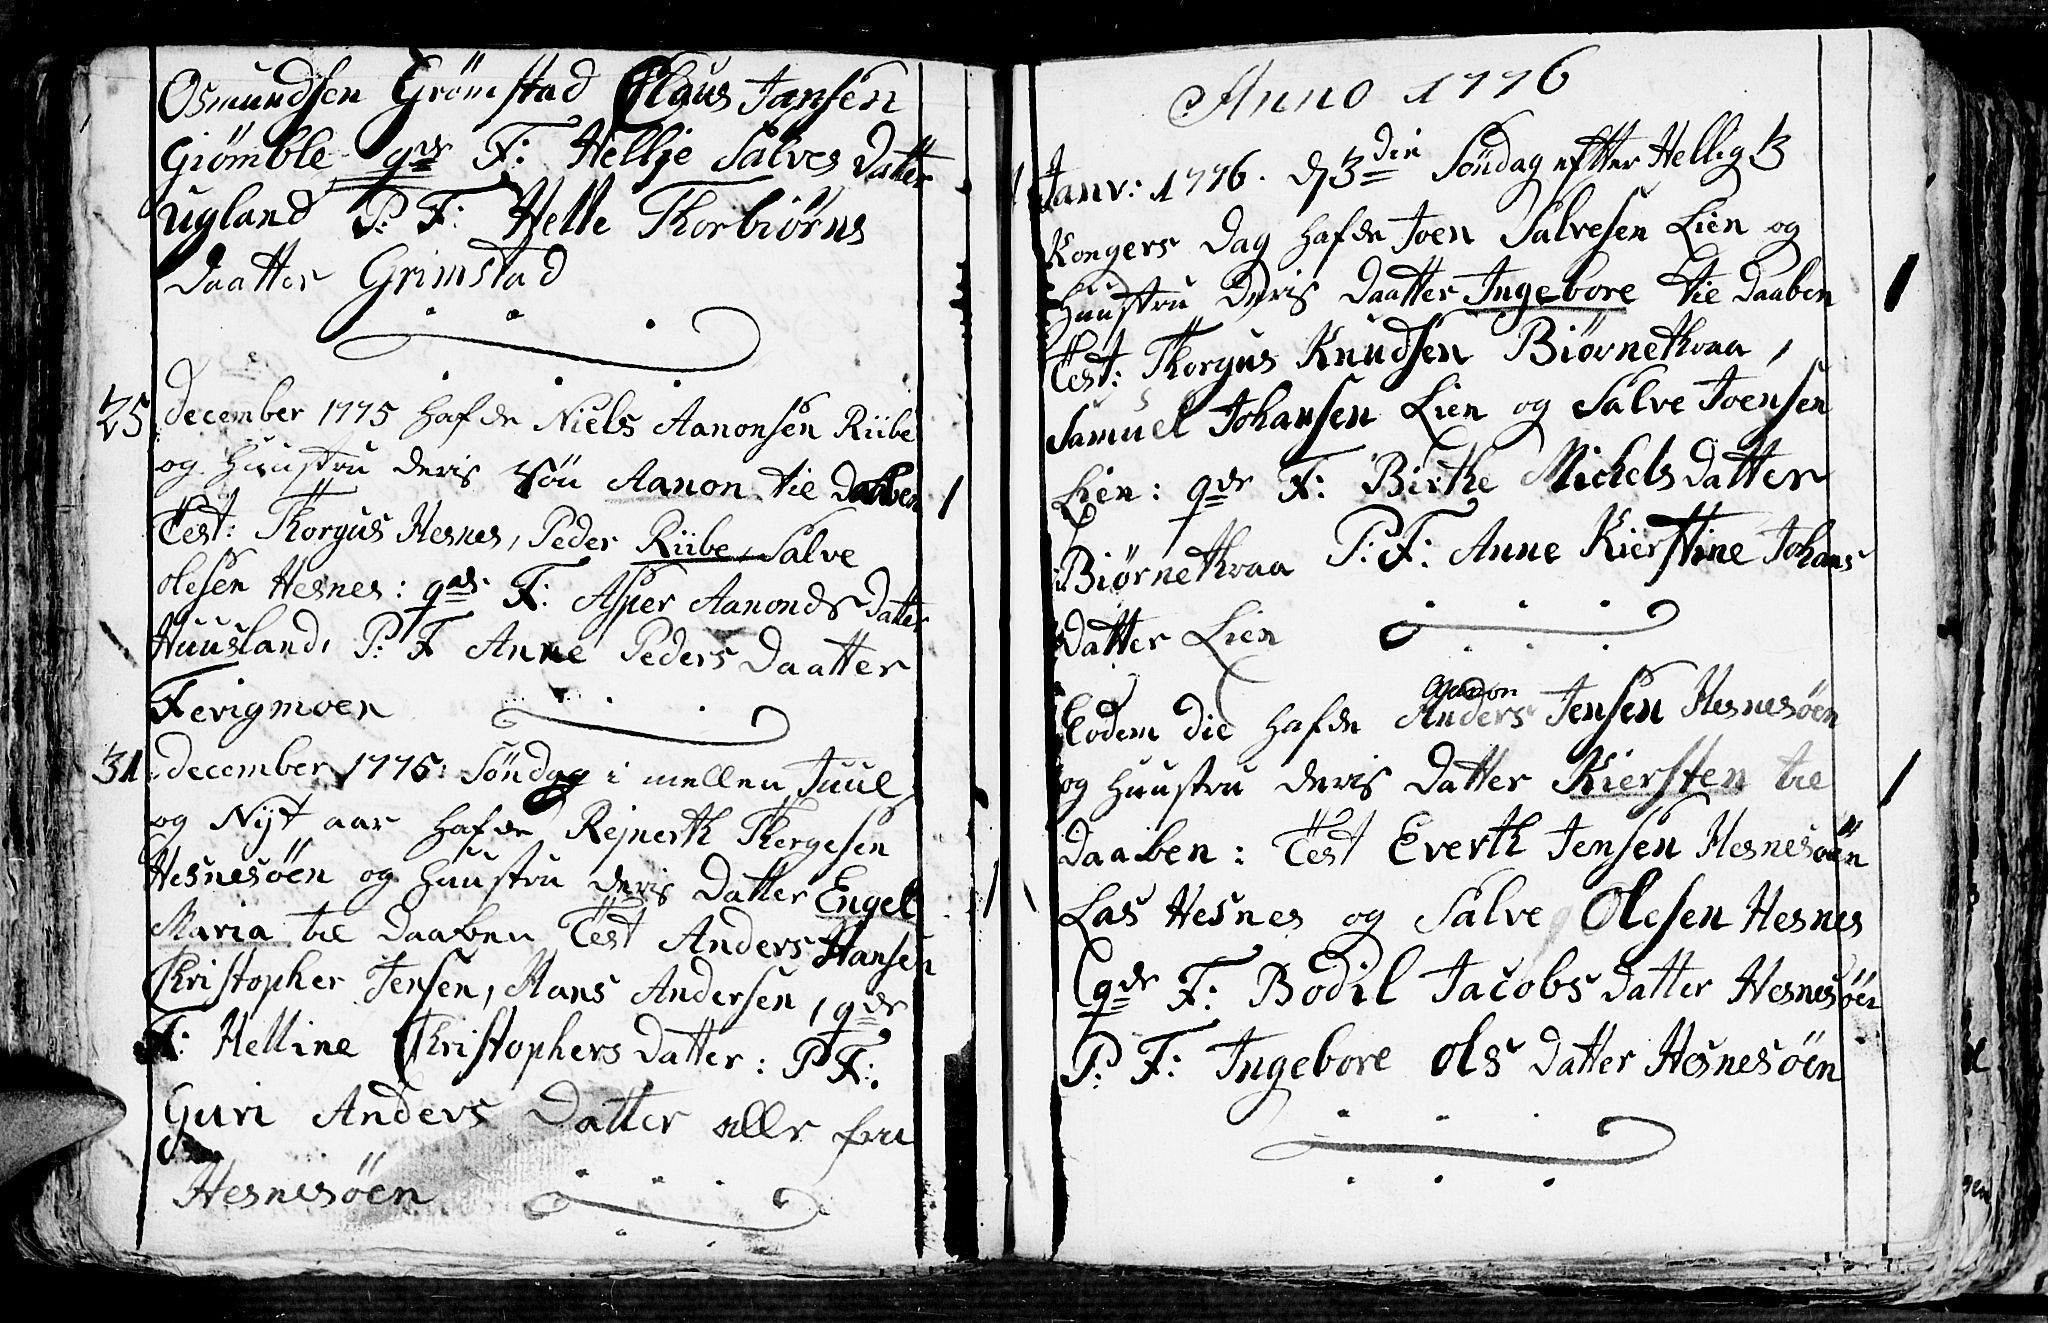 Osmundsen Grömstad Claus Jansen
Giömble qde F: Hellje Salves Datter
Ugland P: F: Helle Thorbiörns
Daatter Grimstad
25 December 1775 hafde Niels Aanonsen Riibe
og Huustru deris Sön Aanon til Daaben 1
Test: Thorgus Hesnes, Peder Riibe, Salve
Olesen Hesnes: qde F: Asper Aanonds Datter
Huusland, P: F Anne Peders Daatter
Fevigmoen
31 December 1775: Söndag i mellen Juul
og Nyt aar hafde Rejnerth Thergesen
Hesnesöen og Huustru deris Datter Engel
Maria til Daaben Test Anders Hansen
Christopher Jensen, Hans Andersen, qde
F: Helline Christophers Datter: P F:
Guri Anders Datter alle fra
Hesnesöen
Anno 1776
Janv: 1776. d 3die Söndag efter Hellig 3
Kongers Dag hafde Joen Salvesen Lien og
Huustru Deris Daatter Ingebore til Daaben 1
Test: Thorgus Knudsen Biørnethvaa,
Samuel Johansen Lien og Salve Joensen
Lien: qde F: Birthe Michels Datter
Biørnethvaa P: F: Anne Kierstine Johans
Datter Lien
Aanon
Eodem die hafde Anders Jensen Hesnesöen
og Huustru deris Datter Kiersten til 1
Daaben: Test Everth Jensen Hesnesöen
Las Hesnes og Salve Olesen Hesnes
qde F: Bodil Jacobs Datter Hesnesöen
P: F: Ingebore Ols Datter Hesnesöen